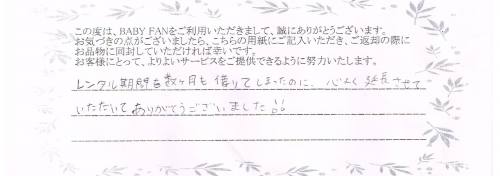 この度は、BABY FANをご利用いただきまして、誠にありがとうございます。
お気づきの点がございましたら、こちらの用紙にご記入いただき、ご返却の際に
お品物に同封していただければ幸いです。
お客様にとって、よりよいサービスをご提供できるように努力いたします。
レンタル期間を数ヶ月も借りてしまったのに、心よく延長させて
いただいてありがとうございました!!